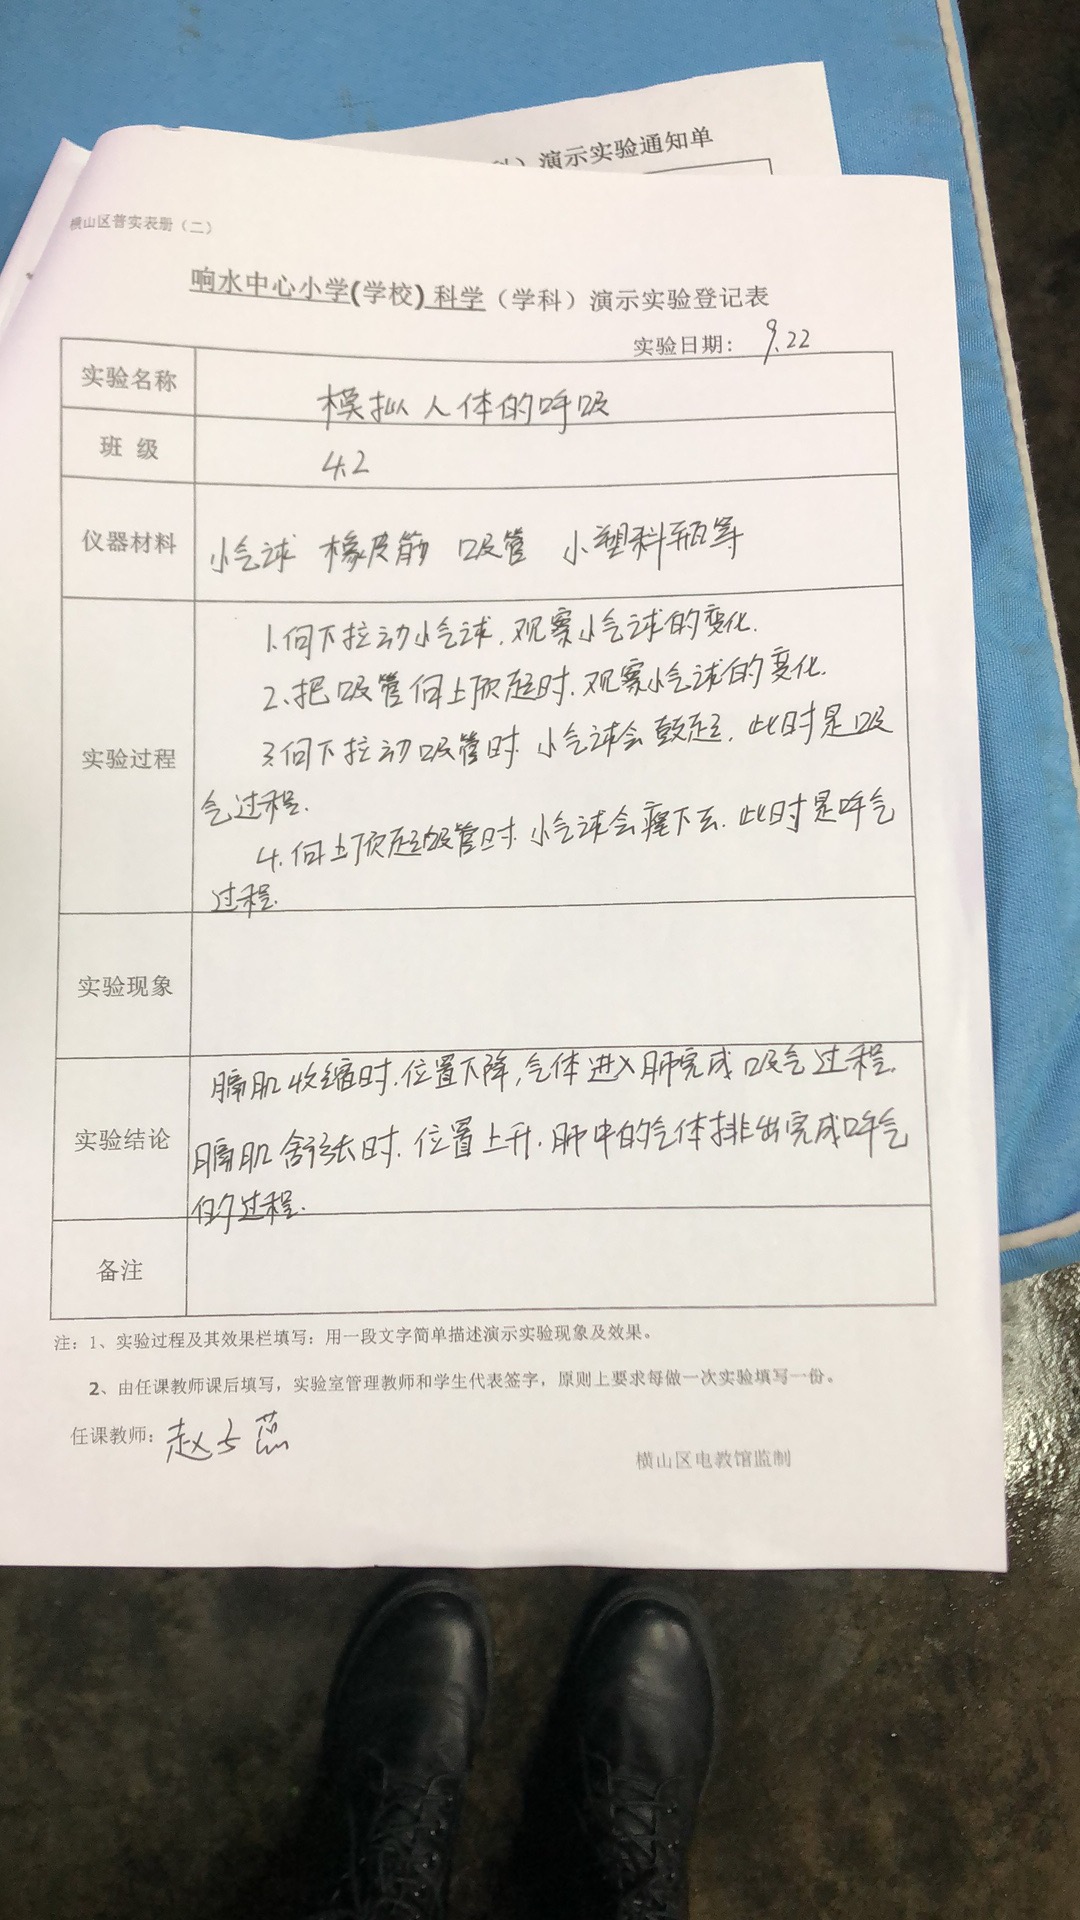 演示实验通知单
横山区普实表册（二）
响水中心小学(学校) 科学（学科）演示实验登记表
实验日期： 9.22
实验名称 模拟人体的呼吸
班 级 4.2
仪器材料 小气球 橡皮筋 吸管 小塑料瓶等
实验过程
1.向下拉动小气球.观察小气球的变化.
2.把吸管向上顶起时.观察小气球的变化.
3.向下拉动吸管时.小气球会鼓起.此时是吸
气过程.
4.向上顶起吸管时.小气球会瘪下去.此时是呼气
过程.
实验现象
实验结论
膈肌收缩时.位置下降,气体进入肺完成吸气过程.
膈肌舒张时.位置上升.肺中的气体排出完成呼气
的过程.
备注
注：1、实验过程及其效果栏填写：用一段文字简单描述演示实验现象及效果。
2、由任课教师课后填写，实验室管理教师和学生代表签字，原则上要求每做一次实验填写一份。
任课教师： 赵
横山区电教馆监制